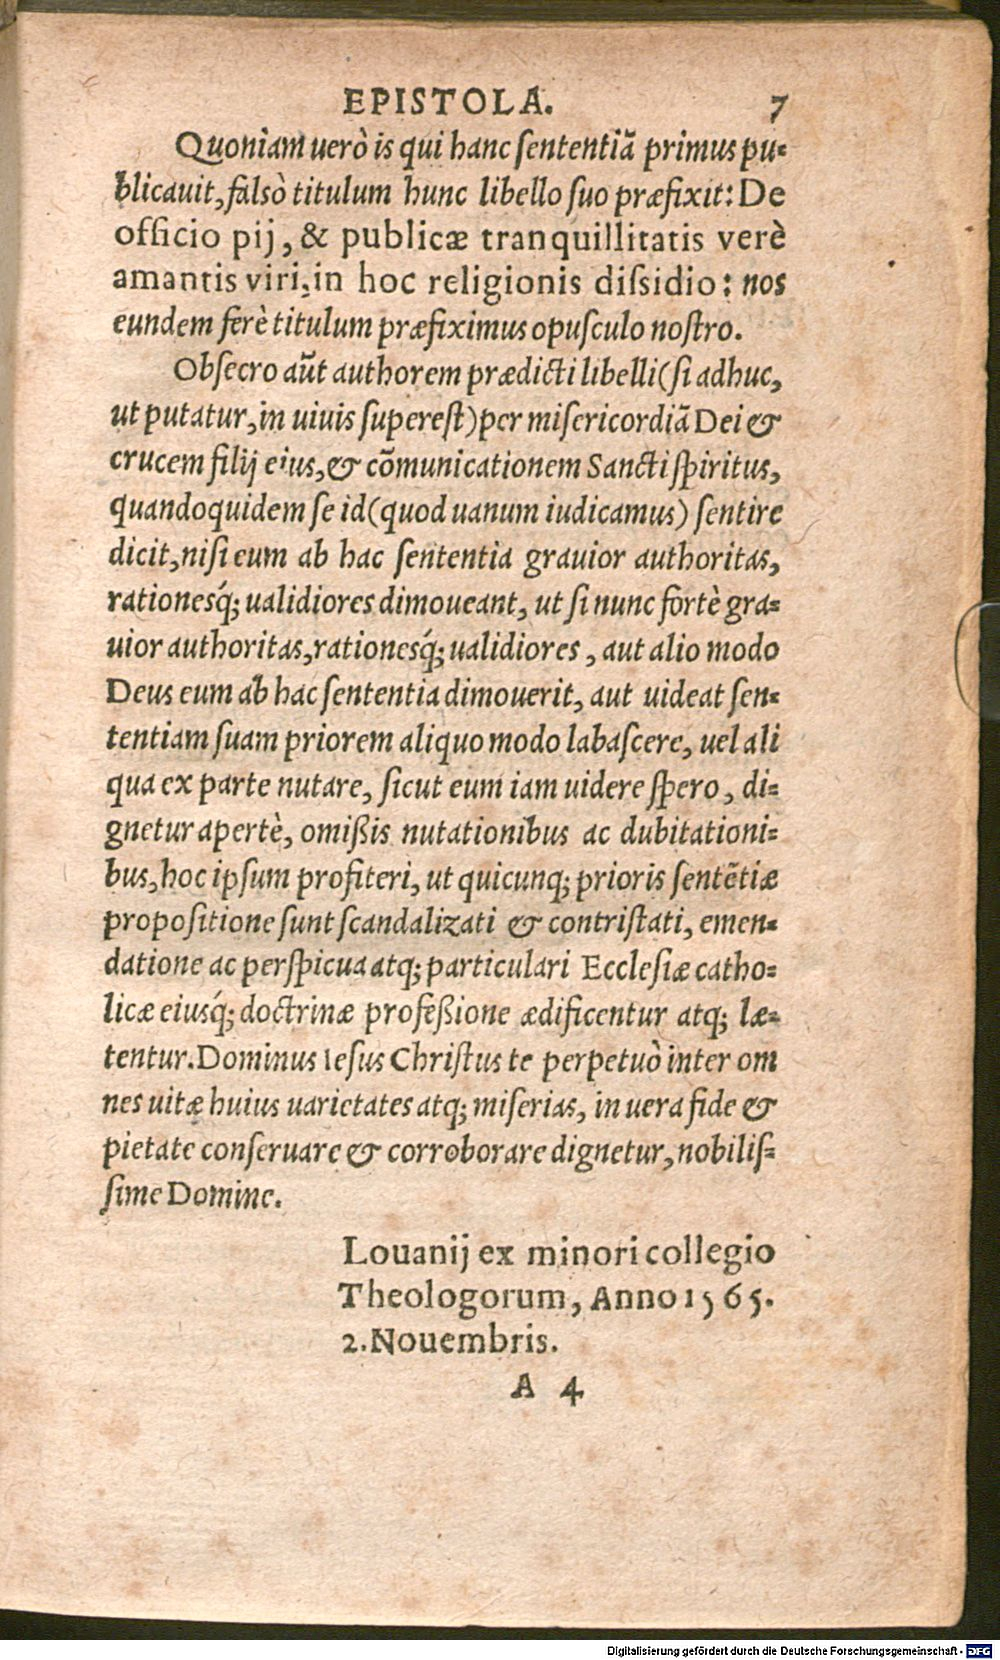 EPISTOLA. 7
Quoniam uerò is qui hanc sententiã primus pu-
blicauit, falsò titulum hunc libello suo præfixit: De
officio pij, & publicæ tranquillitatis verè
amantis viri, in hoc religionis dissidio: nos
eundem ferè titulum præfiximus opusculo nostro.
Obsecro aũt authorem prædicti libelli (si adhuc,
ut putatur, in uiuis superest) per misericordiã Dei &
crucem filij eius, & cõmunicationem Sancti spiritus,
quandoquidem se id (quod uanum iudicamus) sentire
dicit, nisi eum ab hac sententia grauior authoritas,
rationesq́; ualidiores dimoueant, ut si nunc fortè gra-
uior authoritas, rationesq́; ualidiores, aut alio modo
Deus eum ab hac sententia dimouerit, aut uideat sen-
tentiam suam priorem aliquo modo labascere, uel ali
qua ex parte nutare, sicut eum iam uidere spero, di-
gnetur apertè, omißis nutationibus ac dubitationi-
bus, hoc ipsum profiteri, ut quicunq; prioris sentẽtiæ
propositione sunt scandalizati & contristati, emen-
datione ac perspicua atq; particulari Ecclesiæ catho-
licæ eiusq́; doctrinæ profeßione ædificentur atq; læ-
tentur. Dominus Iesus Christus te perpetuò inter om
nes uitæ huius uarietates atq; miserias, in uera fide &
pietate conseruare & corroborare dignetur, nobilis-
sime Domine.
Louanij ex minori collegio
Theologorum, Anno 1565.
2. Nouembris.
A 4
Digitalisierung gefördert durch die Deutsche Forschungsgemeinschaft - DFG